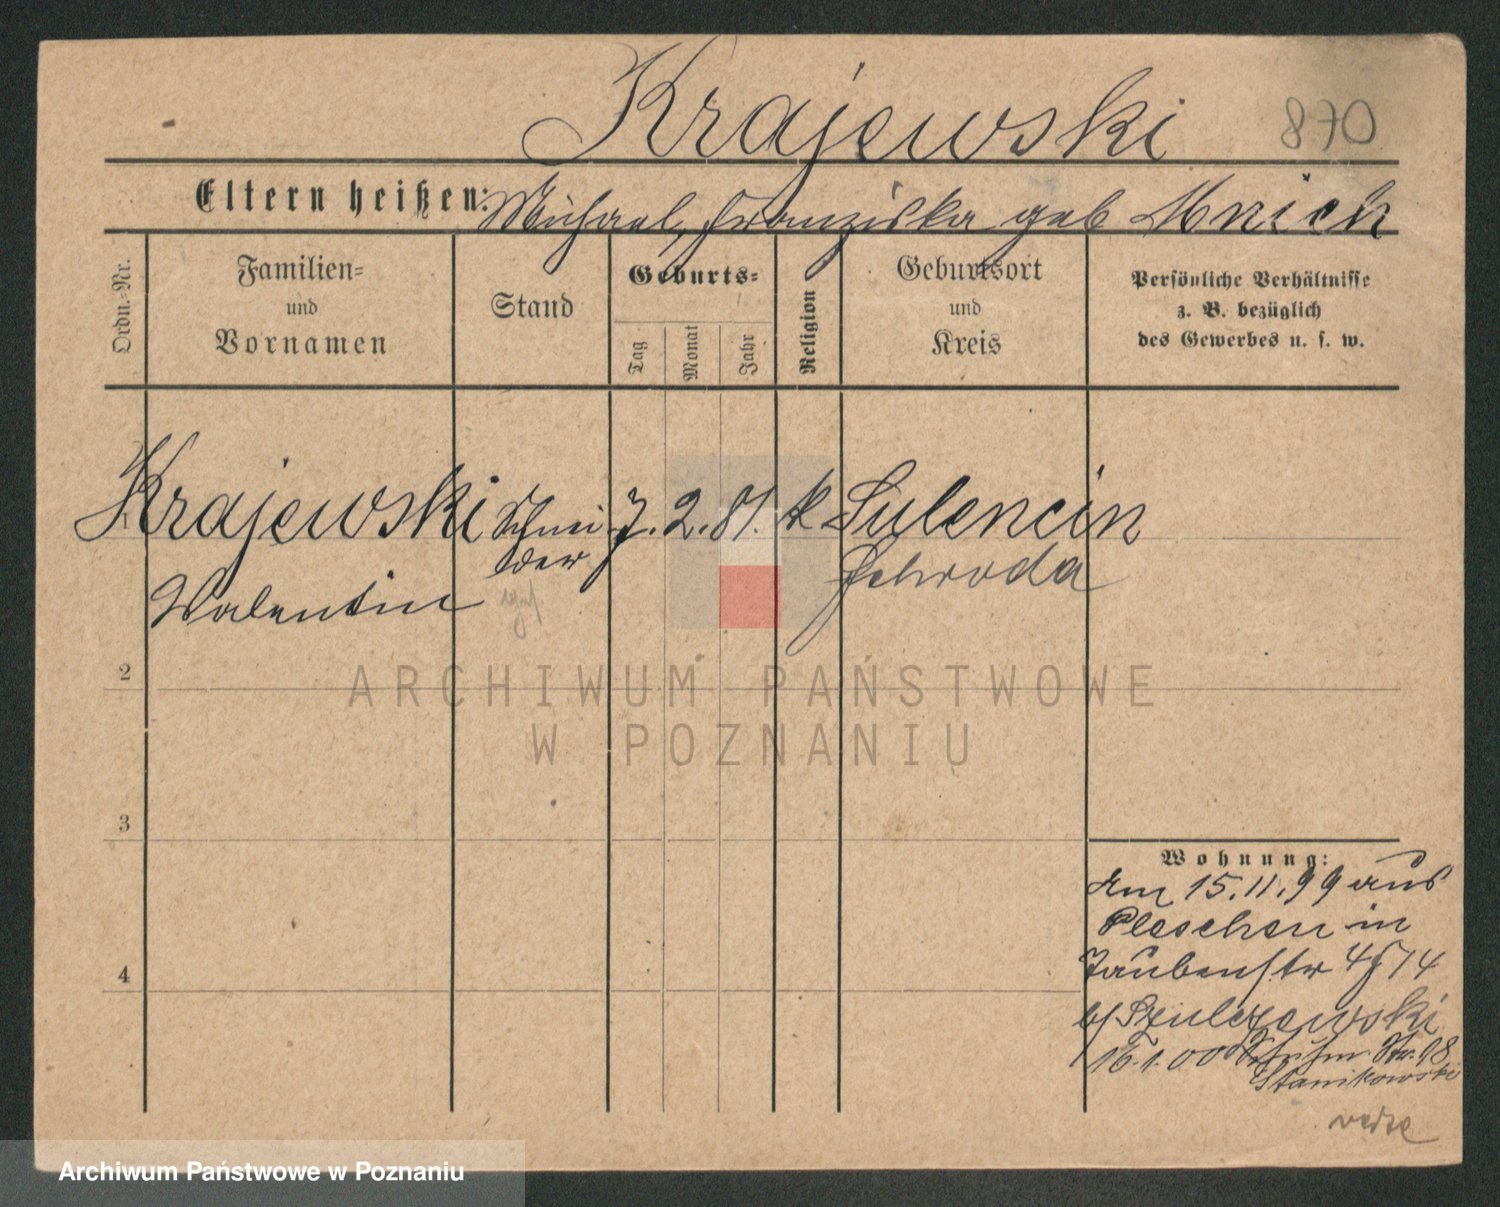 Krajewski 870
Eltern heißen: Michael, Franziska geb Mnich
Ordn.-Nr.
Familien- und Vornamen
Stand
Geburts-
Tag
Monat
Jahr
Religion
Geburtsort und Kreis
Persönliche Verhältnisse
z. B. bezüglich
des Gewerbes u. s. w.
1 Krajewski Schnei 7. 2. 81. k Sulencin
der Schroda
Valentin
2
3
4
Wohnung:
Am 15.11.99 aus
Pleschen in
Taubenstr 4 14
b/ Szulczewski
16.1.00 Str. 18
Stanikowski
ARCHIWUM PAŃSTWOWE
W POZNANIU
Archiwum Państwowe w Poznaniu